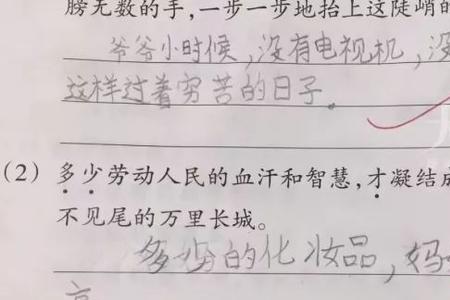 膀无数的手，一步一步地抬上这陡峭的
爷爷小时候，没有电视机，没
这样过着穷苦的日子。
(2) 多少劳动人民的血汗和智慧，才凝结成
不见尾的万里长城。
多少的化妆品，妈